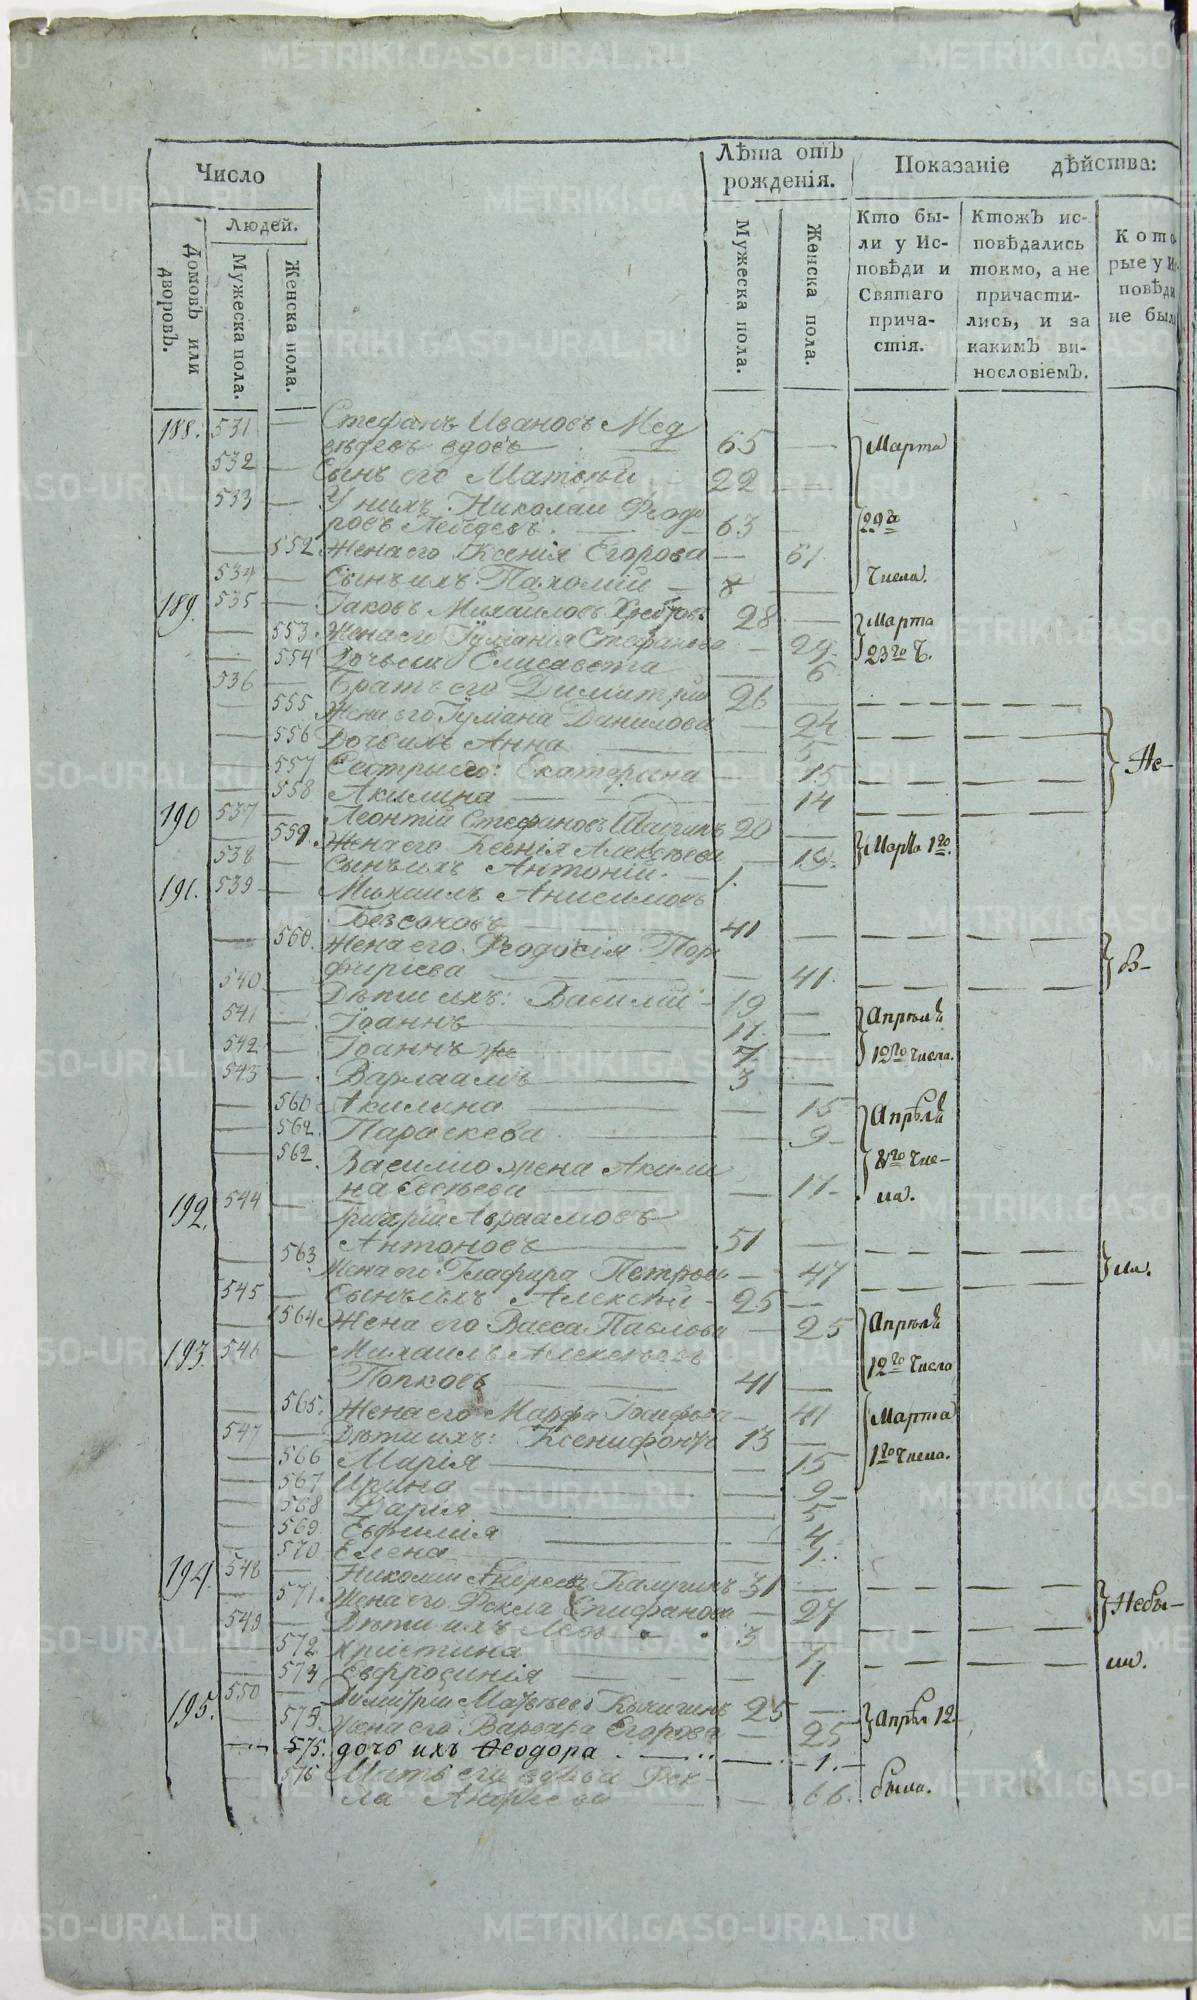 Число
Людей.
Домовъ или дворовъ.
Мужеска пола.
Женска пола.
Лѣта отъ рожденія.
Мужеска пола.
Женска пола.
Показаніе дѣйства:
Кто бы-
ли у Ис-
повѣди и
Святаго
прича-
стія.
Ктожъ ис-
повѣдались
токмо, а не
причасти-
лись, и за
какимъ ви-
нословіемъ.
Кото
рые у Ис
повѣди
не был
188. 531 — Стефанъ Ивановъ Мед
вѣдевъ вдовъ — 65 — Марта
532 — Сынъ его Матвѣй 22 —
533 — У нихъ Николай Ѳеодо
ровъ Лебедевъ 63 — 29 а
— 552 Жена его Ксенія Егорова — 61
534 — Сынъ ихъ Пахомій — 8 числа.
189. 535 — Іаковъ Михайловъ 28 — Марта
— 553 Жена его Іуліанія Стефанова — 29. 23 го Ч.
— 554 Дочь ихъ Елисавета — 6
536 — Братъ его Димитрій 26 —
— 555 Жена его Іуліана Данилова — 24
— 556 Дочь ихъ Анна — 5
— 557 Сестры его: Екатерина — 15 Не-
— 558 Акилина — 14
190 537 — Леонтій Стефановъ 20 —
— 559. Жена его Ксенія Алексѣева — 19. Марта 1 го.
538 — Сынъ ихъ Антоній. — 1. —
191. 539 — Михаилъ Анисимовъ
Безсоновъ 41
— 560. Жена его Ѳеодосія Пор
фиріева — 41. в-
540 — Дѣти ихъ: Василій — 19 —
541 — Іоаннъ 17. — Апрѣля
542 — Іоаннъ же 7 — 12 го числа.
543 — Варлаамъ 3 —
— 560 Акилина — 15 Апрѣля
— 562. Параскева — 9 -
— 562. Василію жена Акили 8 го чис-
на Евсѣева — 17 - ла.
192. 544 — Григорій Авраамовъ
Антоновъ 51
— 563. Жена его Глафира Петрова — 47 ли.
545 — Сынъ ихъ Алексѣй - 25 —
— 564 Жена его Васса Павлова — 25 Апрѣля
193. 546 — Михаилъ Алексѣевъ
Попковъ 41 — 12 го число
— 565. Жена его Марфа Іосифова — 41 Марта
547 — Дѣти ихъ: Ксенифонтъ 13 —
— 566 Марія — 15 1 го числа.
— 567 Ирина — 9 -
— 568 Дарія — 5
— 569. Евфимія — 4
— 570 Елена — 1.
194. 548 — Николай Андреевъ Калугинъ 31 —
— 571. Жена его Ѳекла Епифанова — 27 Небы-
549 — Дѣти ихъ Левъ 3 —
— 572 Христина
— 573 Евфросинія — 1 ли.
195. 550 — Димитрій Матвѣевъ Кычигинъ 25 —
— 575 Жена его Варвара Егорова — 25 Апрѣл 12
575. дочь ихъ Ѳеодора. — 1. —
— 576 Мать его вдова Ѳек-
ла Андреева — 66. была.